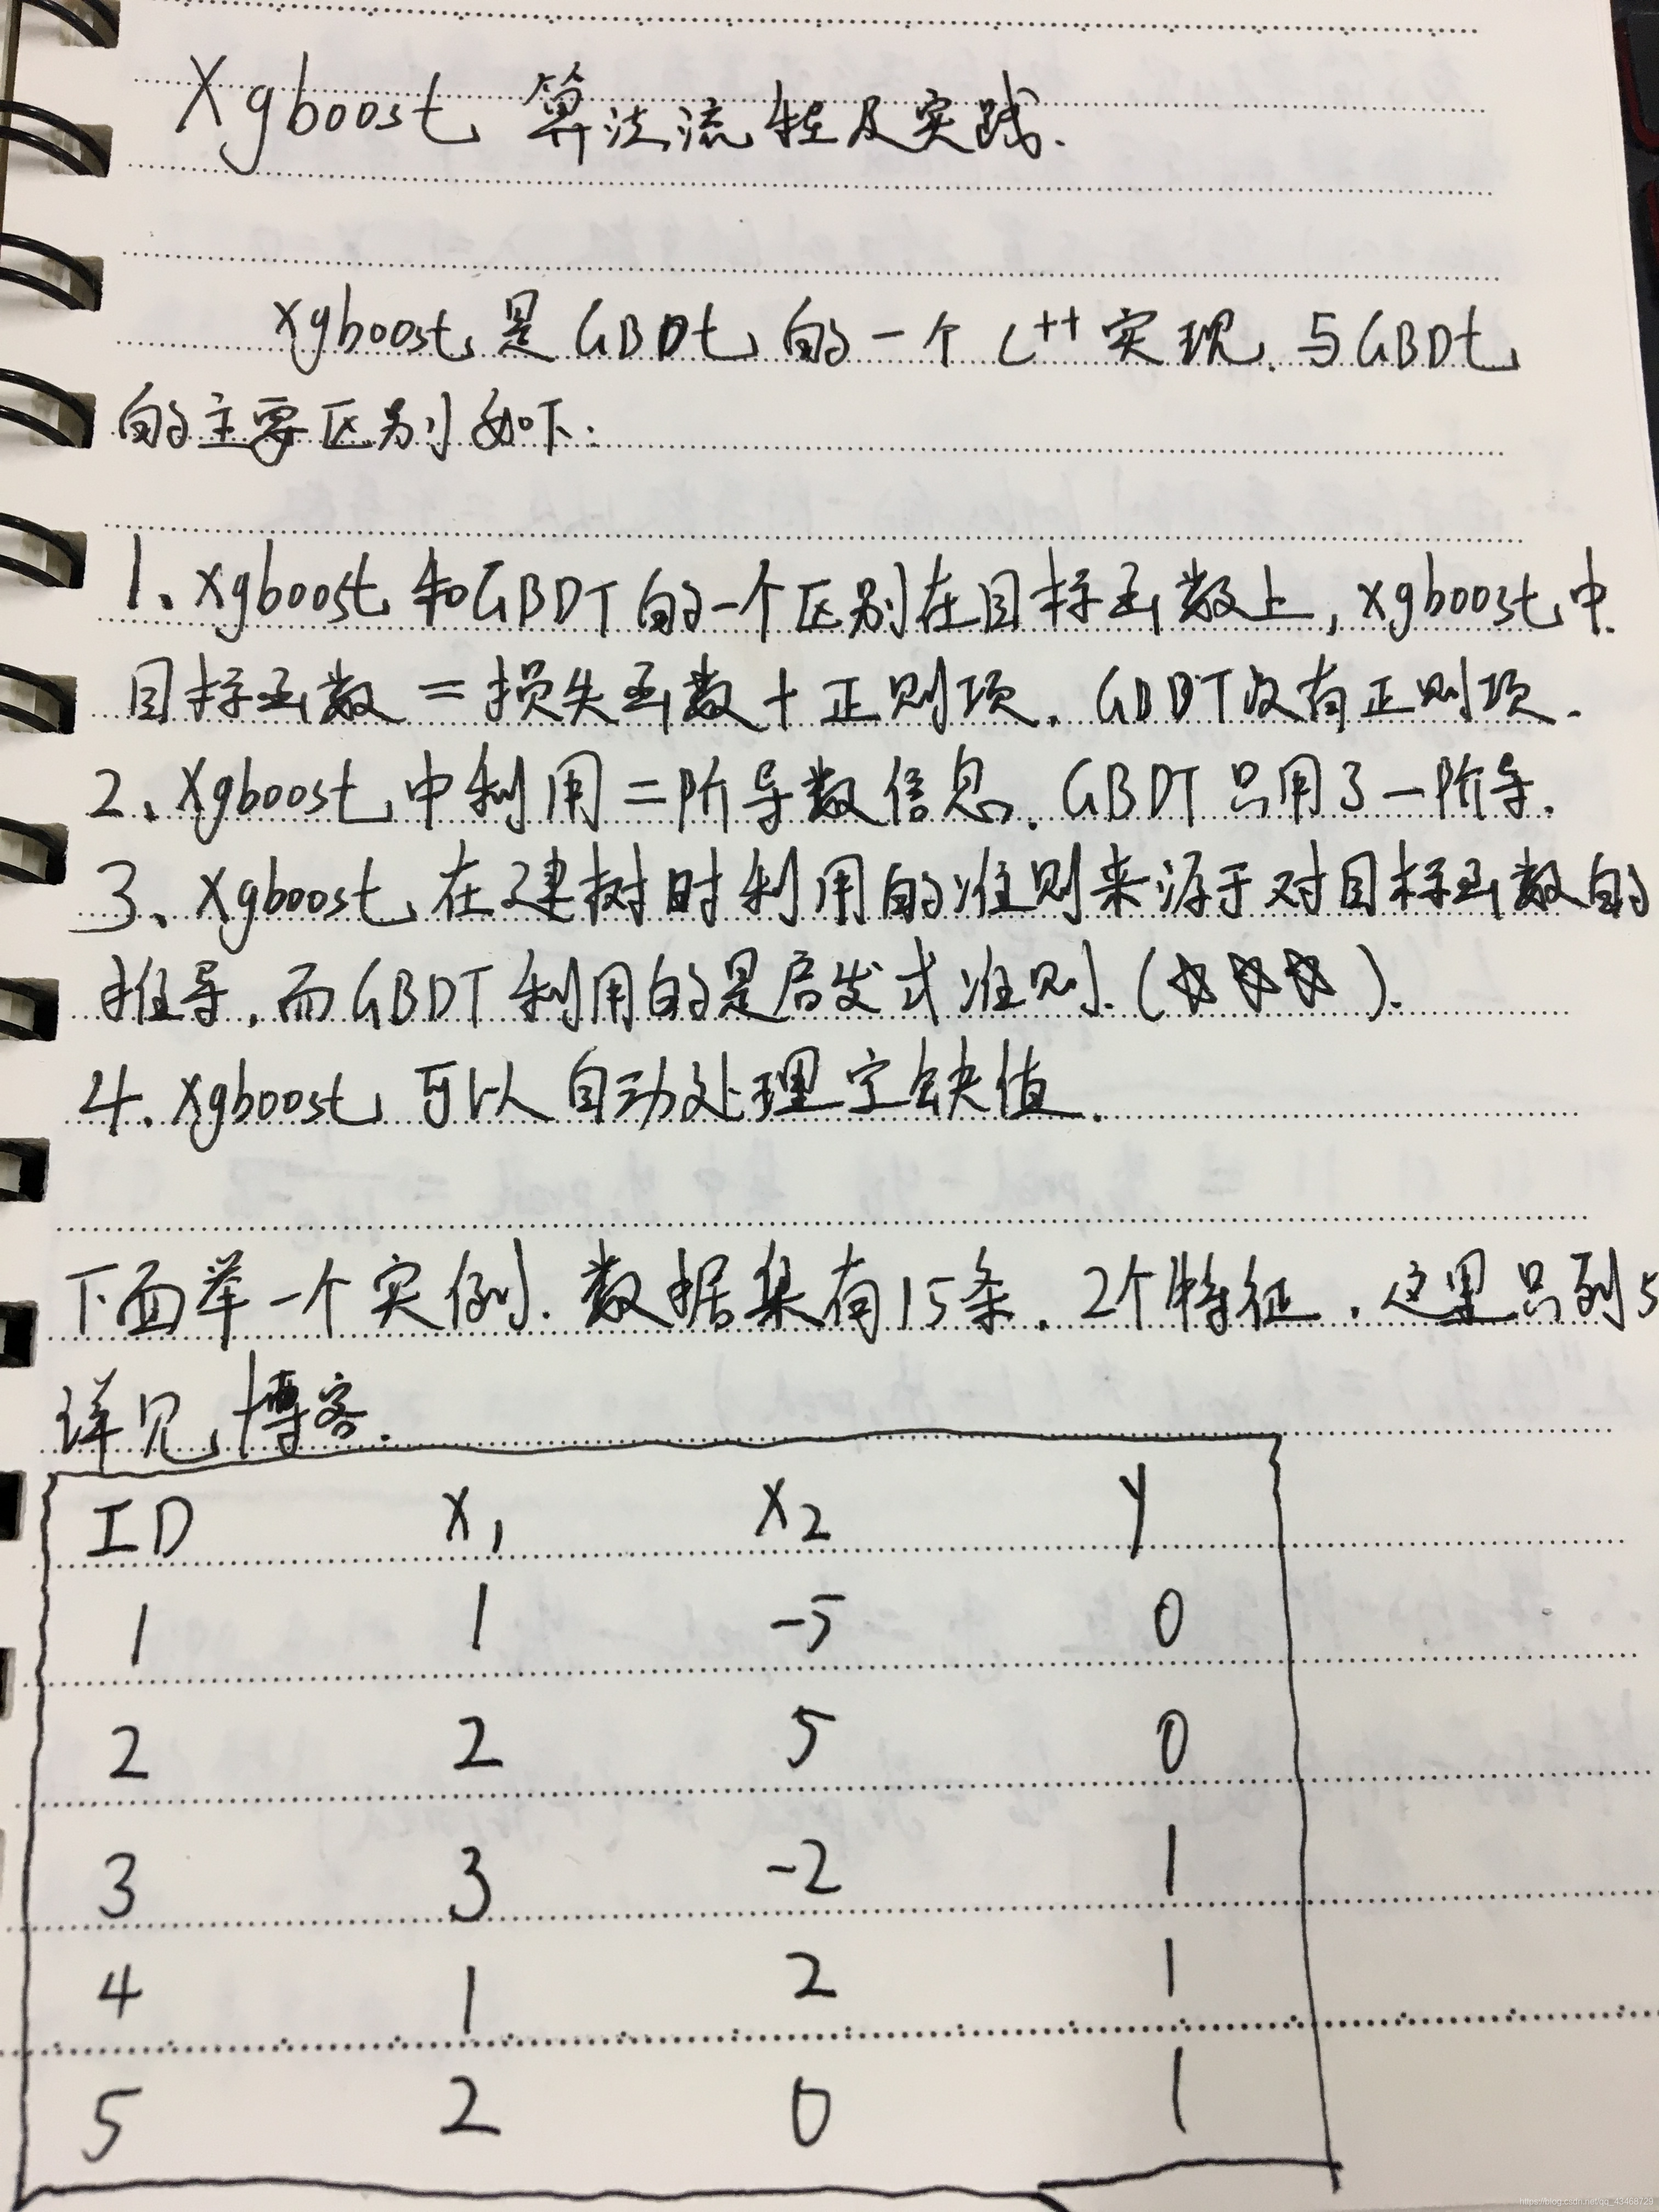 Xgboost 算法流程及实践.
xgboost 是 GBDt 的一个 C++ 实现. 与GBDt
的主要区别如下:
1、xgboost 和GBDT的一个区别在目标函数上, xgboost中
目标函数 = 损失函数 + 正则项. GBDT没有正则项.
2、Xgboost 中利用二阶导数信息. GBDT 只用了一阶导.
3、Xgboost 在建树时利用的准则来源于对目标函数的
推导, 而GBDT利用的是启发式准则. (☆☆☆).
4. Xgboost 可以自动处理空缺值.
下面举一个实例. 数据集有15条. 2个特征. 这里只列5
详见博客.
ID X1 X2 y
1 1 -5 0
2 2 5 0
3 3 -2 1
4 1 2 1
5 2 0 1
https://blog.csdn.net/qq_43468729